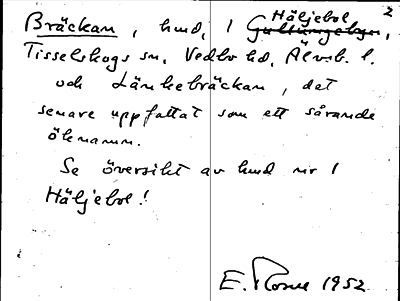 2
Bräckan, hmd, i Häljebol,
Tisselskogs sn, Vedbo hd, Älvsb. l.
och Länkebräckan, det
senare uppfattat som ett sårande
öknamn.
Se översikt av hmd nr 1
Häljebol!
E. Rosell 1952